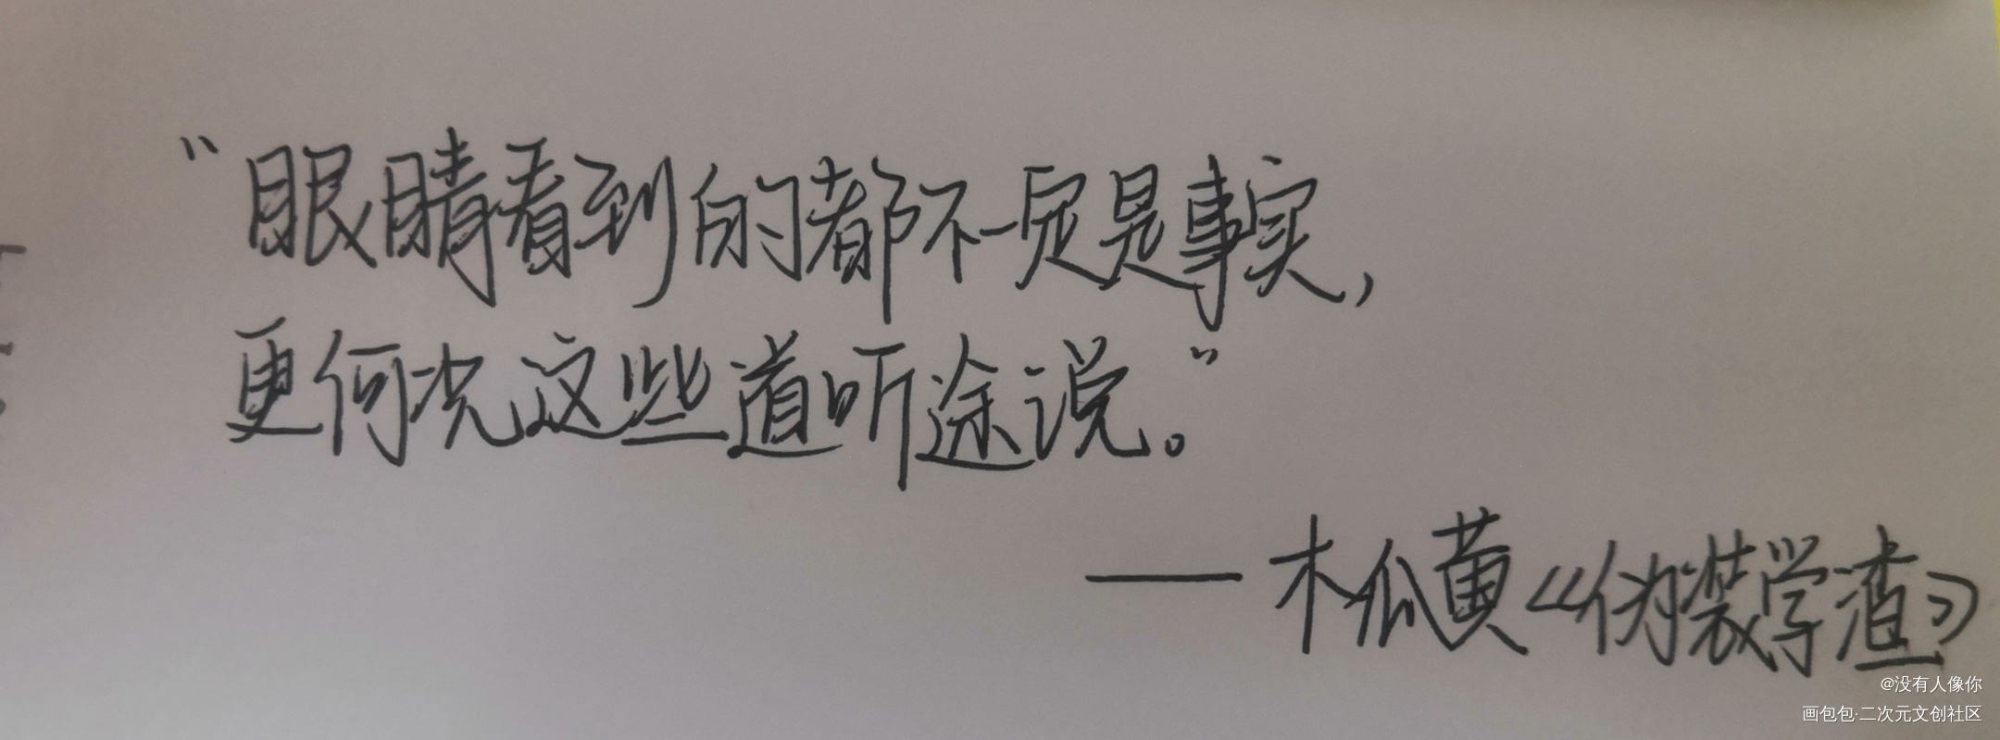 “眼睛看到的都不一定是事实，
更何况这些道听途说。”
——木瓜黄《伪装学渣》
@没有人像你
画包包·二次元文创社区